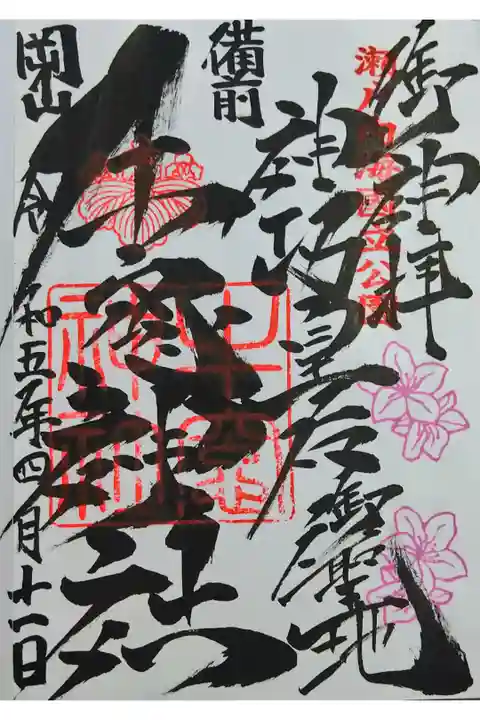 御神拝
瀬戸内海国立公園
神功皇后御聖地
備前
牛窓神社
岡山
令和五年四月十一日